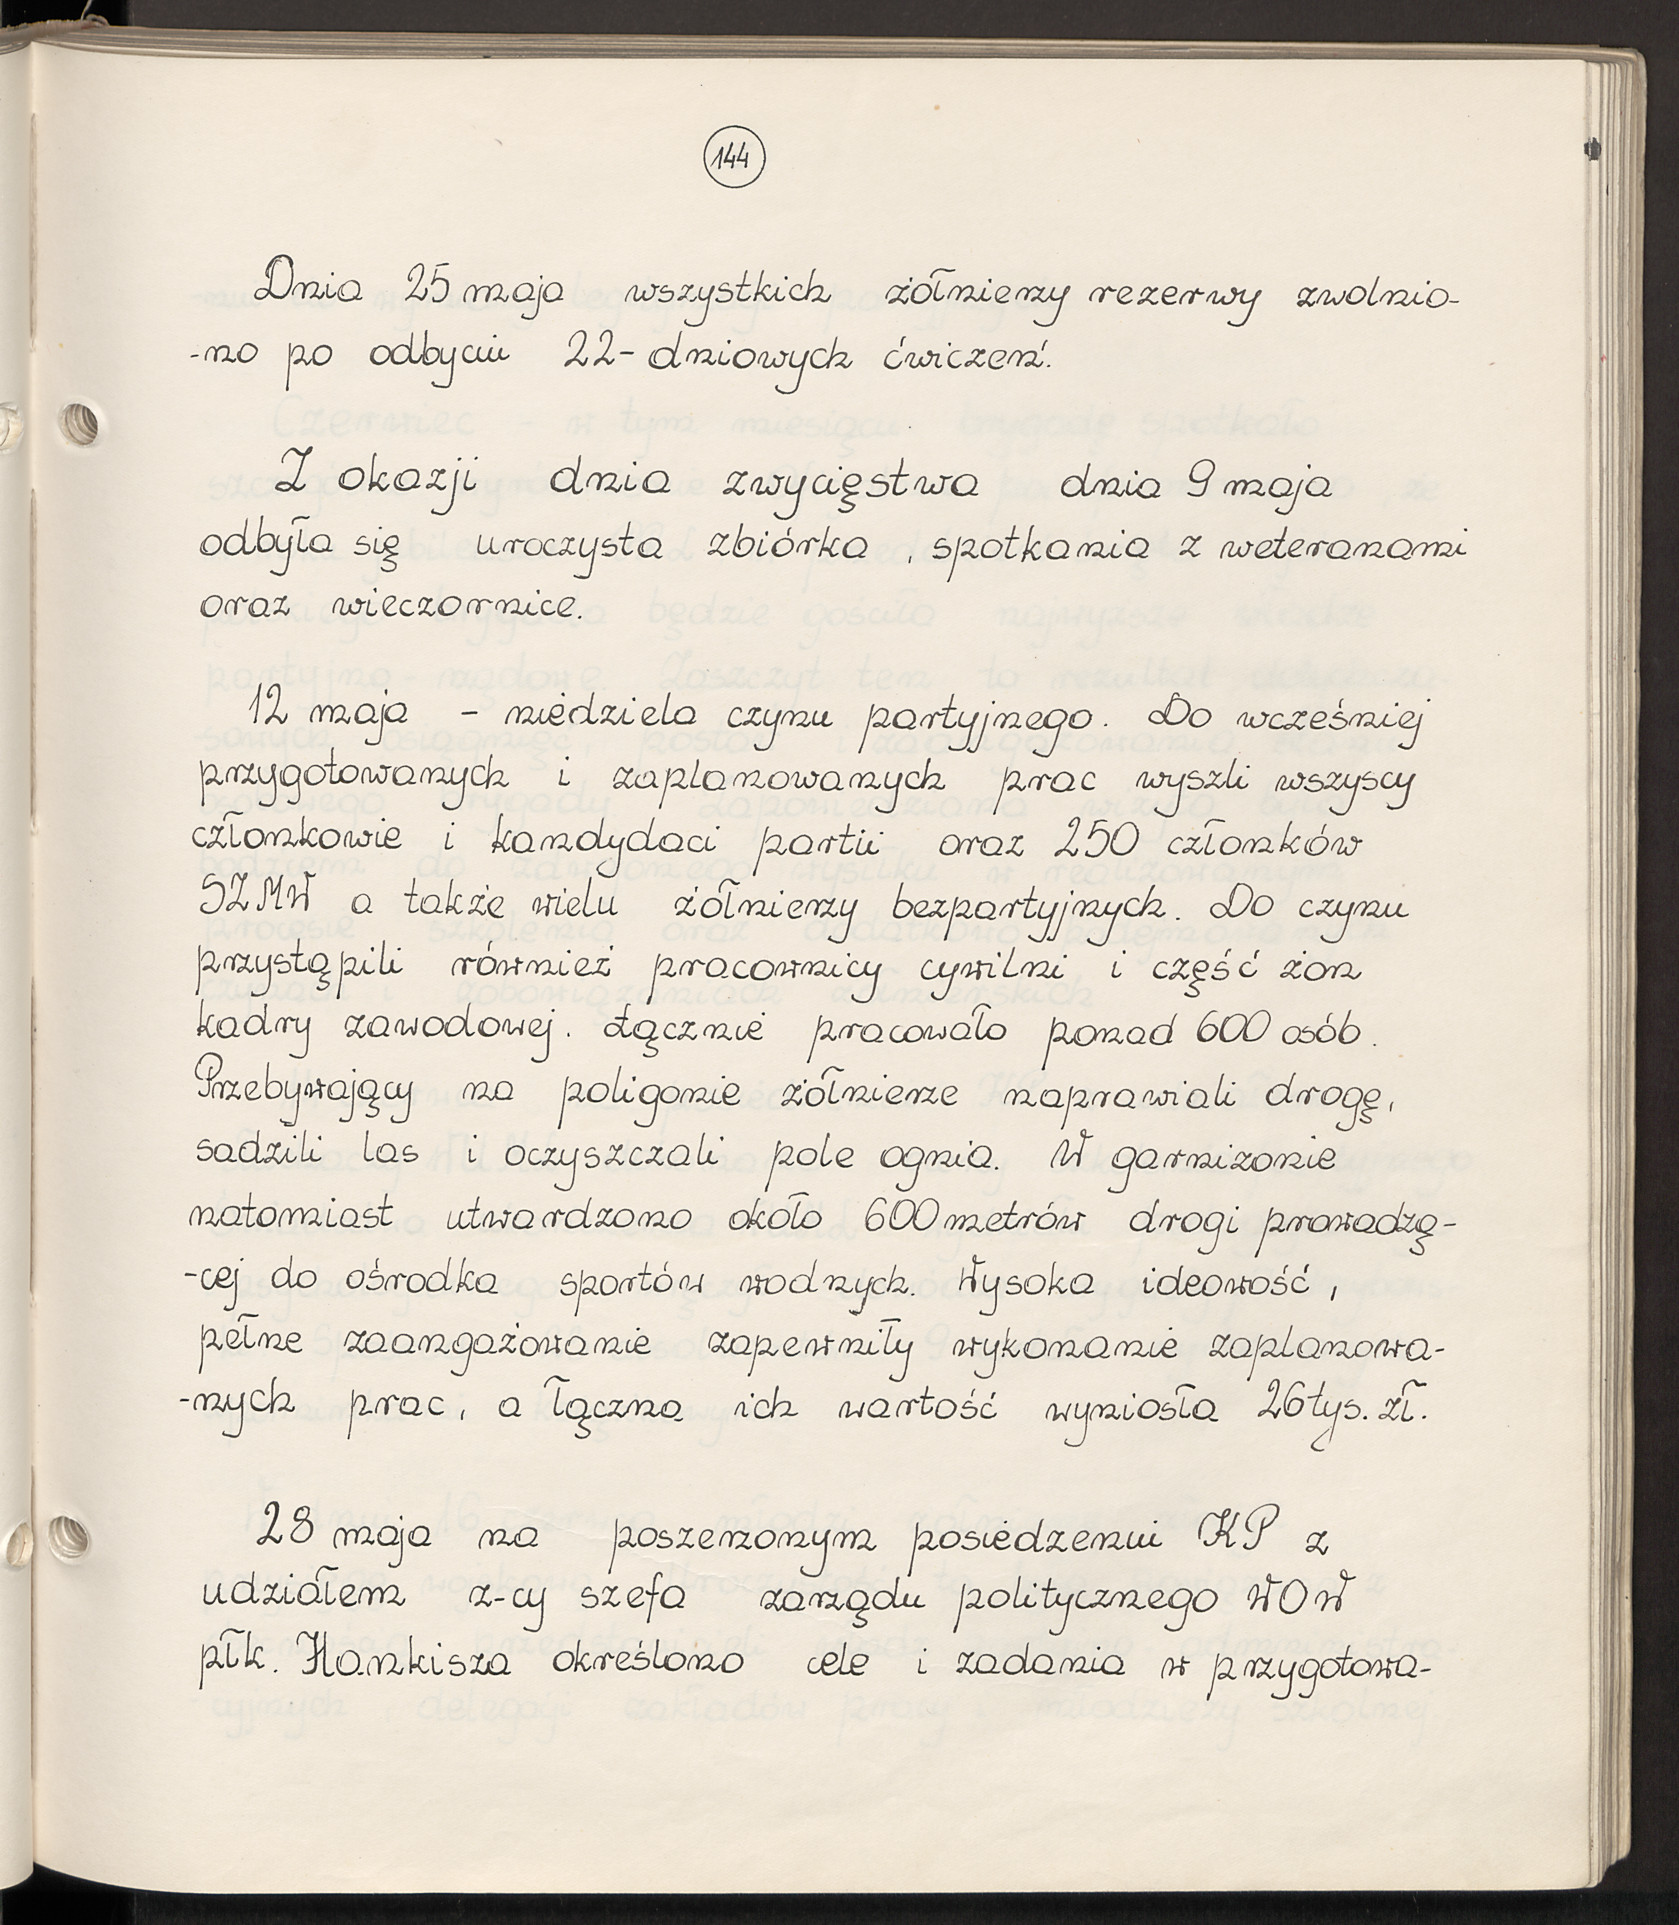 144
Dnia 25 maja wszystkich żołnierzy rezerwy zwolnio-
-no po odbyciu 22-dniowych ćwiczeń.
Z okazji dnia zwycięstwa dnia 9 maja
odbyła się uroczysta zbiórka, spotkania z weteranami
oraz wieczornice.
12 maja - niedziela czynu partyjnego. Do wcześniej
przygotowanych i zaplanowanych prac wyszli wszyscy
członkowie i kandydaci partii oraz 250 członków
SZMW a także wielu żołnierzy bezpartyjnych. Do czynu
przystąpili również pracownicy cywilni i część żon
kadry zawodowej. Łącznie pracowało ponad 600 osób.
Przebywający na poligonie żołnierze naprawiali drogę,
sadzili las i oczyszczali pole ognia. W garnizonie
natomiast utwardzono około 600 metrów drogi prowadzą-
-cej do ośrodka sportów wodnych. Wysoka ideowość,
pełne zaangażowanie zapewniły wykonanie zaplanowa-
-nych prac, a łączna ich wartość wyniosła 26 tys. zł.
28 maja na poszerzonym posiedzeniu KP z
udziałem z-cy szefa zarządu politycznego WOW
płk. Hankisza określono cele i zadania w przygotowa-